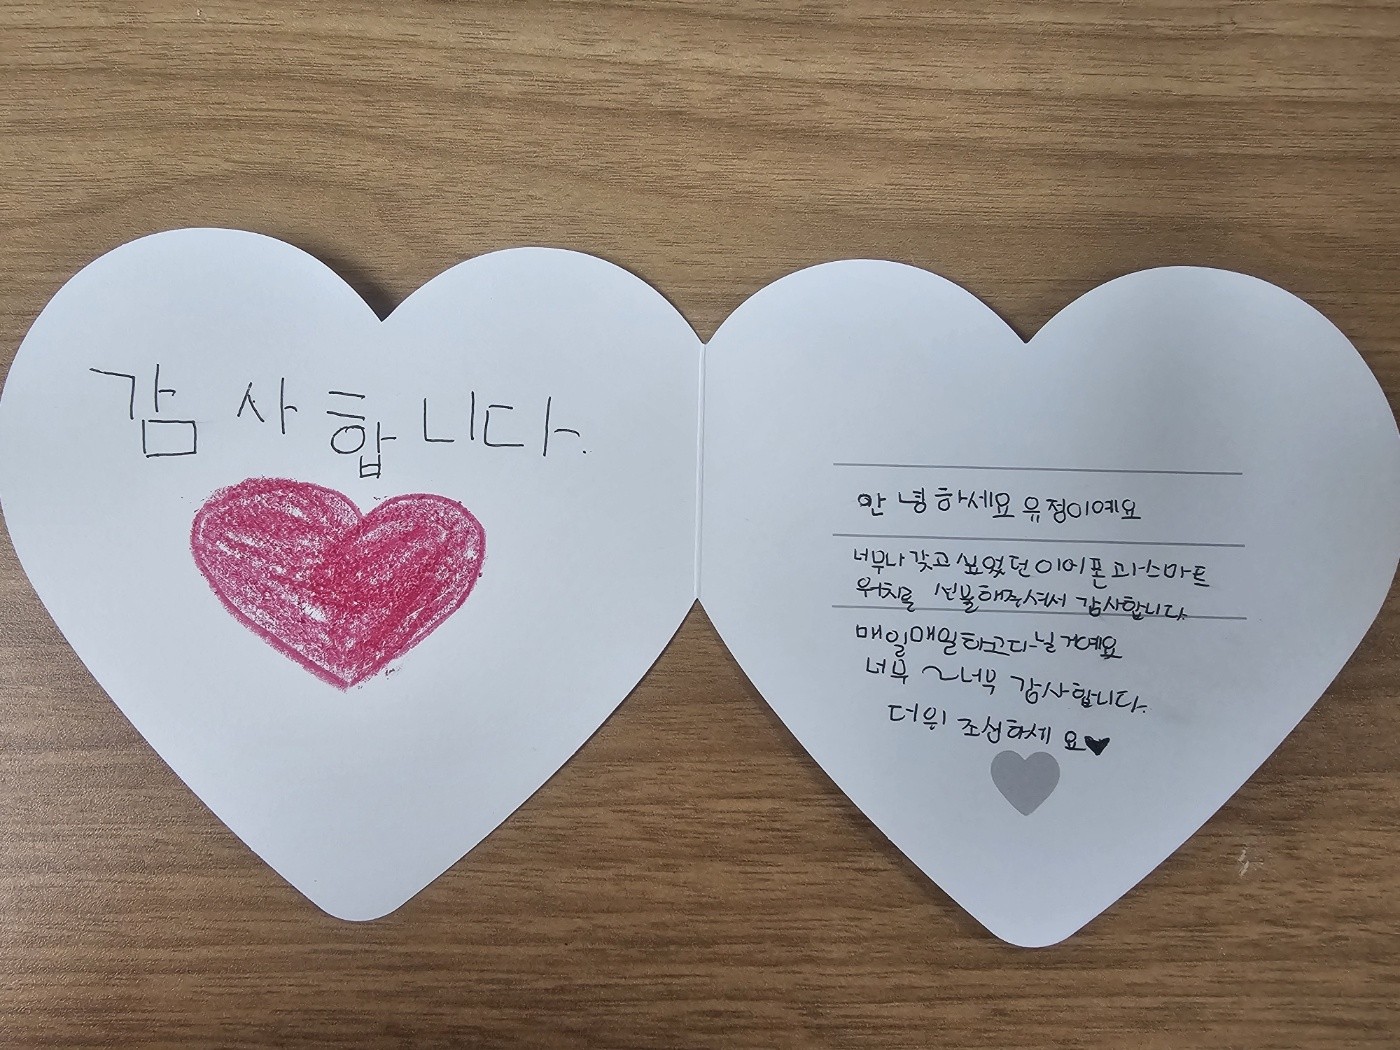 감사합니다.
안녕하세요 유정이예요
너무나 갖고 싶었던 아이폰과 스마트
워치를 선물해주셔서 감사합니다
매일매일 하고다닐거예요
너무 ~너무 감사합니다.
더위 조심하세요♥